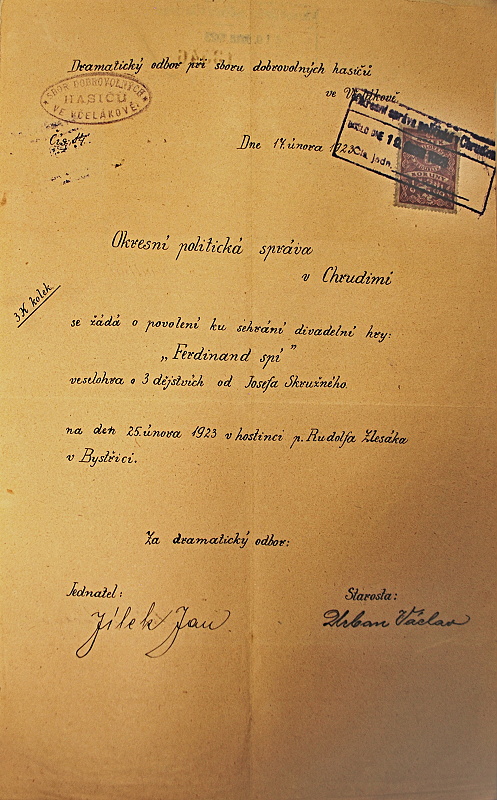 Dramatický odbor při sboru dobrovolných hasičů
ve Včelákově.
SBOR DOBROVOLNÝCH
HASIČŮ
VE VČELÁKOVĚ.
Dne 14. února 1923.
Okresní politická správa
v Chrudimi
3 K kolek
se žádá o povolení ku sehrání divadelní hry:
„Ferdinand spí”
veselohra o 3 dějstvích od Josefa Skružného.
na den 25. února 1923 v hostinci p. Rudolfa Zlesáka
v Bystřici.
Za dramatický odbor:
Jednatel:
Starosta:
Jílek Jan
Urban Václav